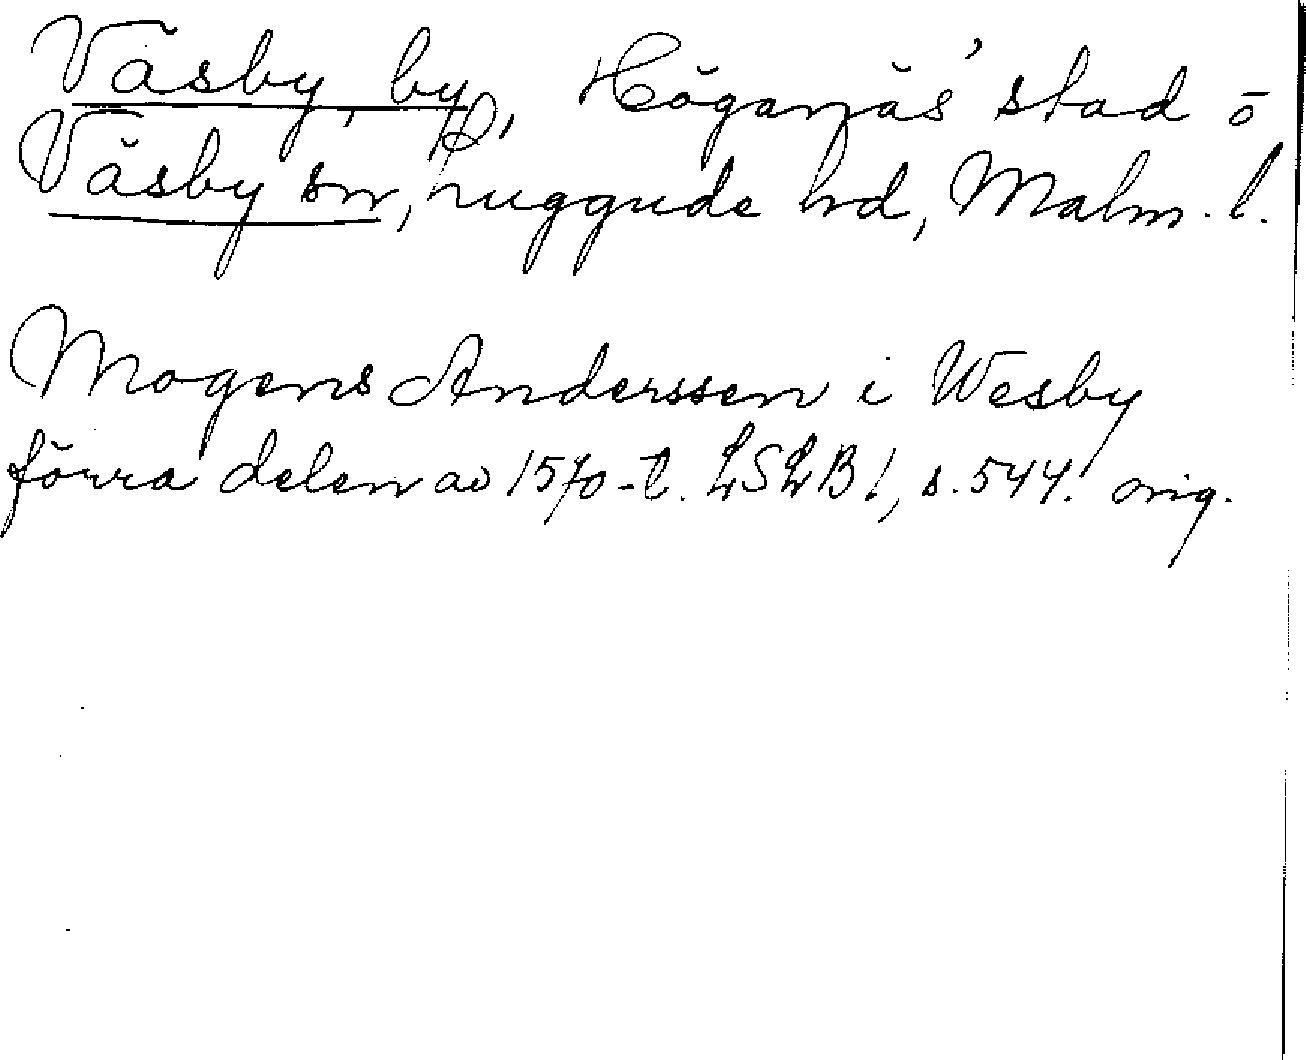 Väsby, by, Höganäs' stad ö
Väsby sn, Luggude hd, Malm. l.
Mogens Anderssen i Wesby
förra delen av 1570-t. LSLB 1, s. 544. orig.